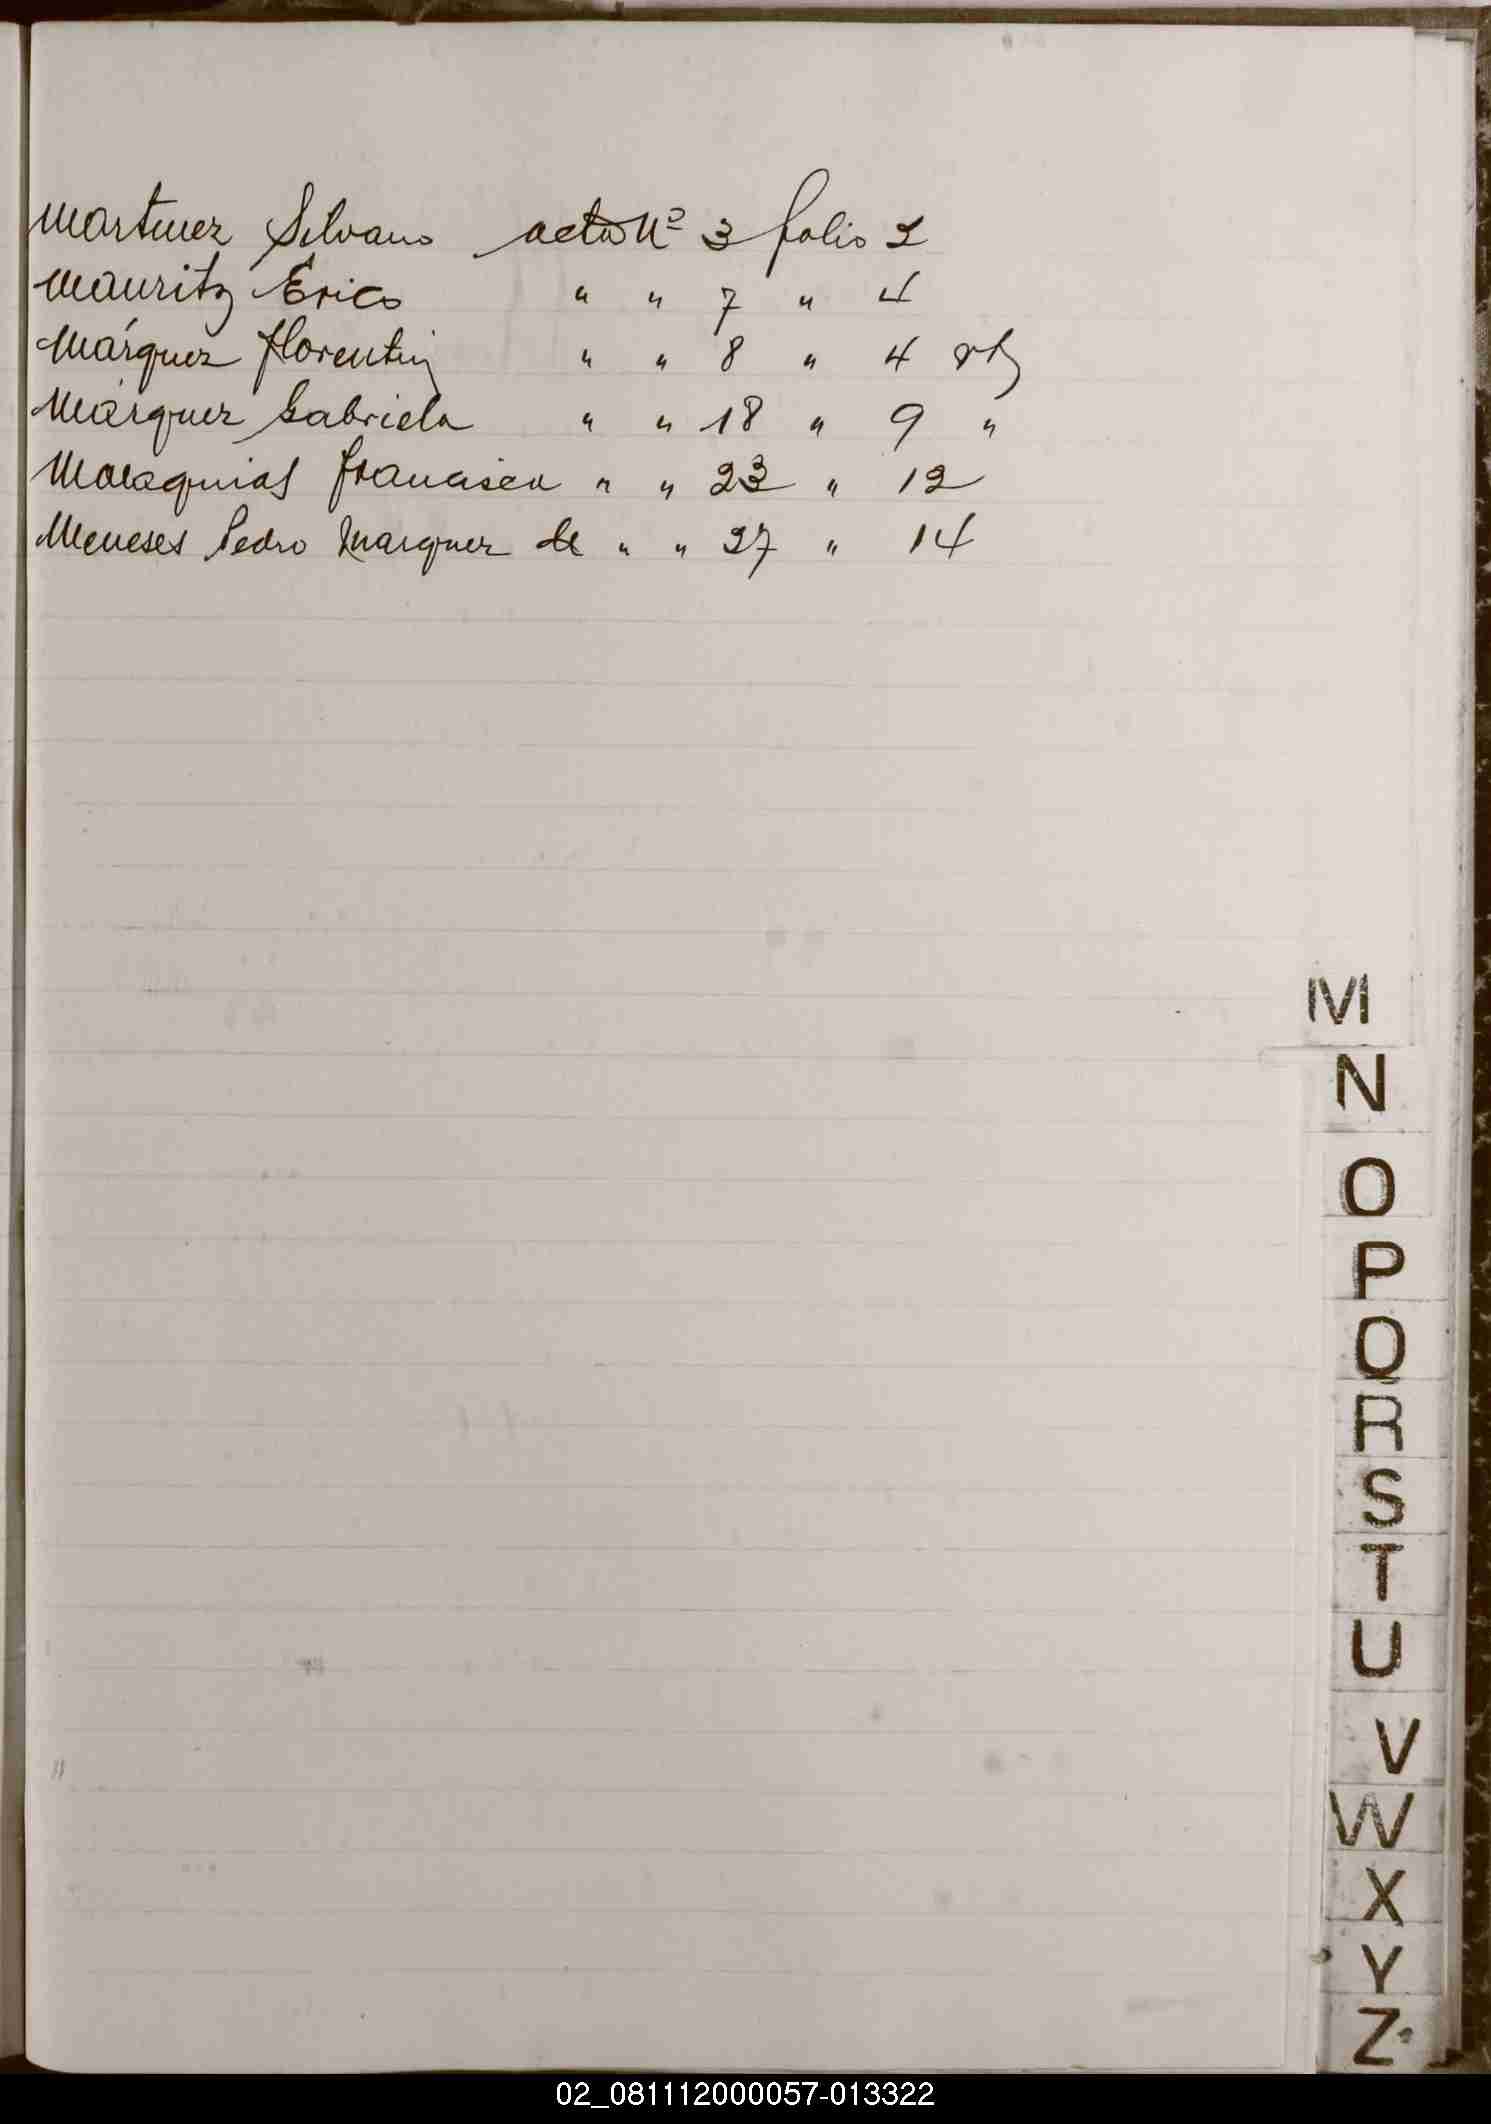 Martinez Silvano acta Nº 3 folio 2
Mauritz Erico " " 7 " 4
Márquez Florentin " " 8 " 4 vta
Márquez Gabriela " " 18 " 9 "
Malaquias Francisca " " 23 " 12
Meneses Pedro Marquez de " " 27 " 14
M
N
O
P
Q
R
S
T
U
V
W
X
Y
Z
02_081112000057-013322